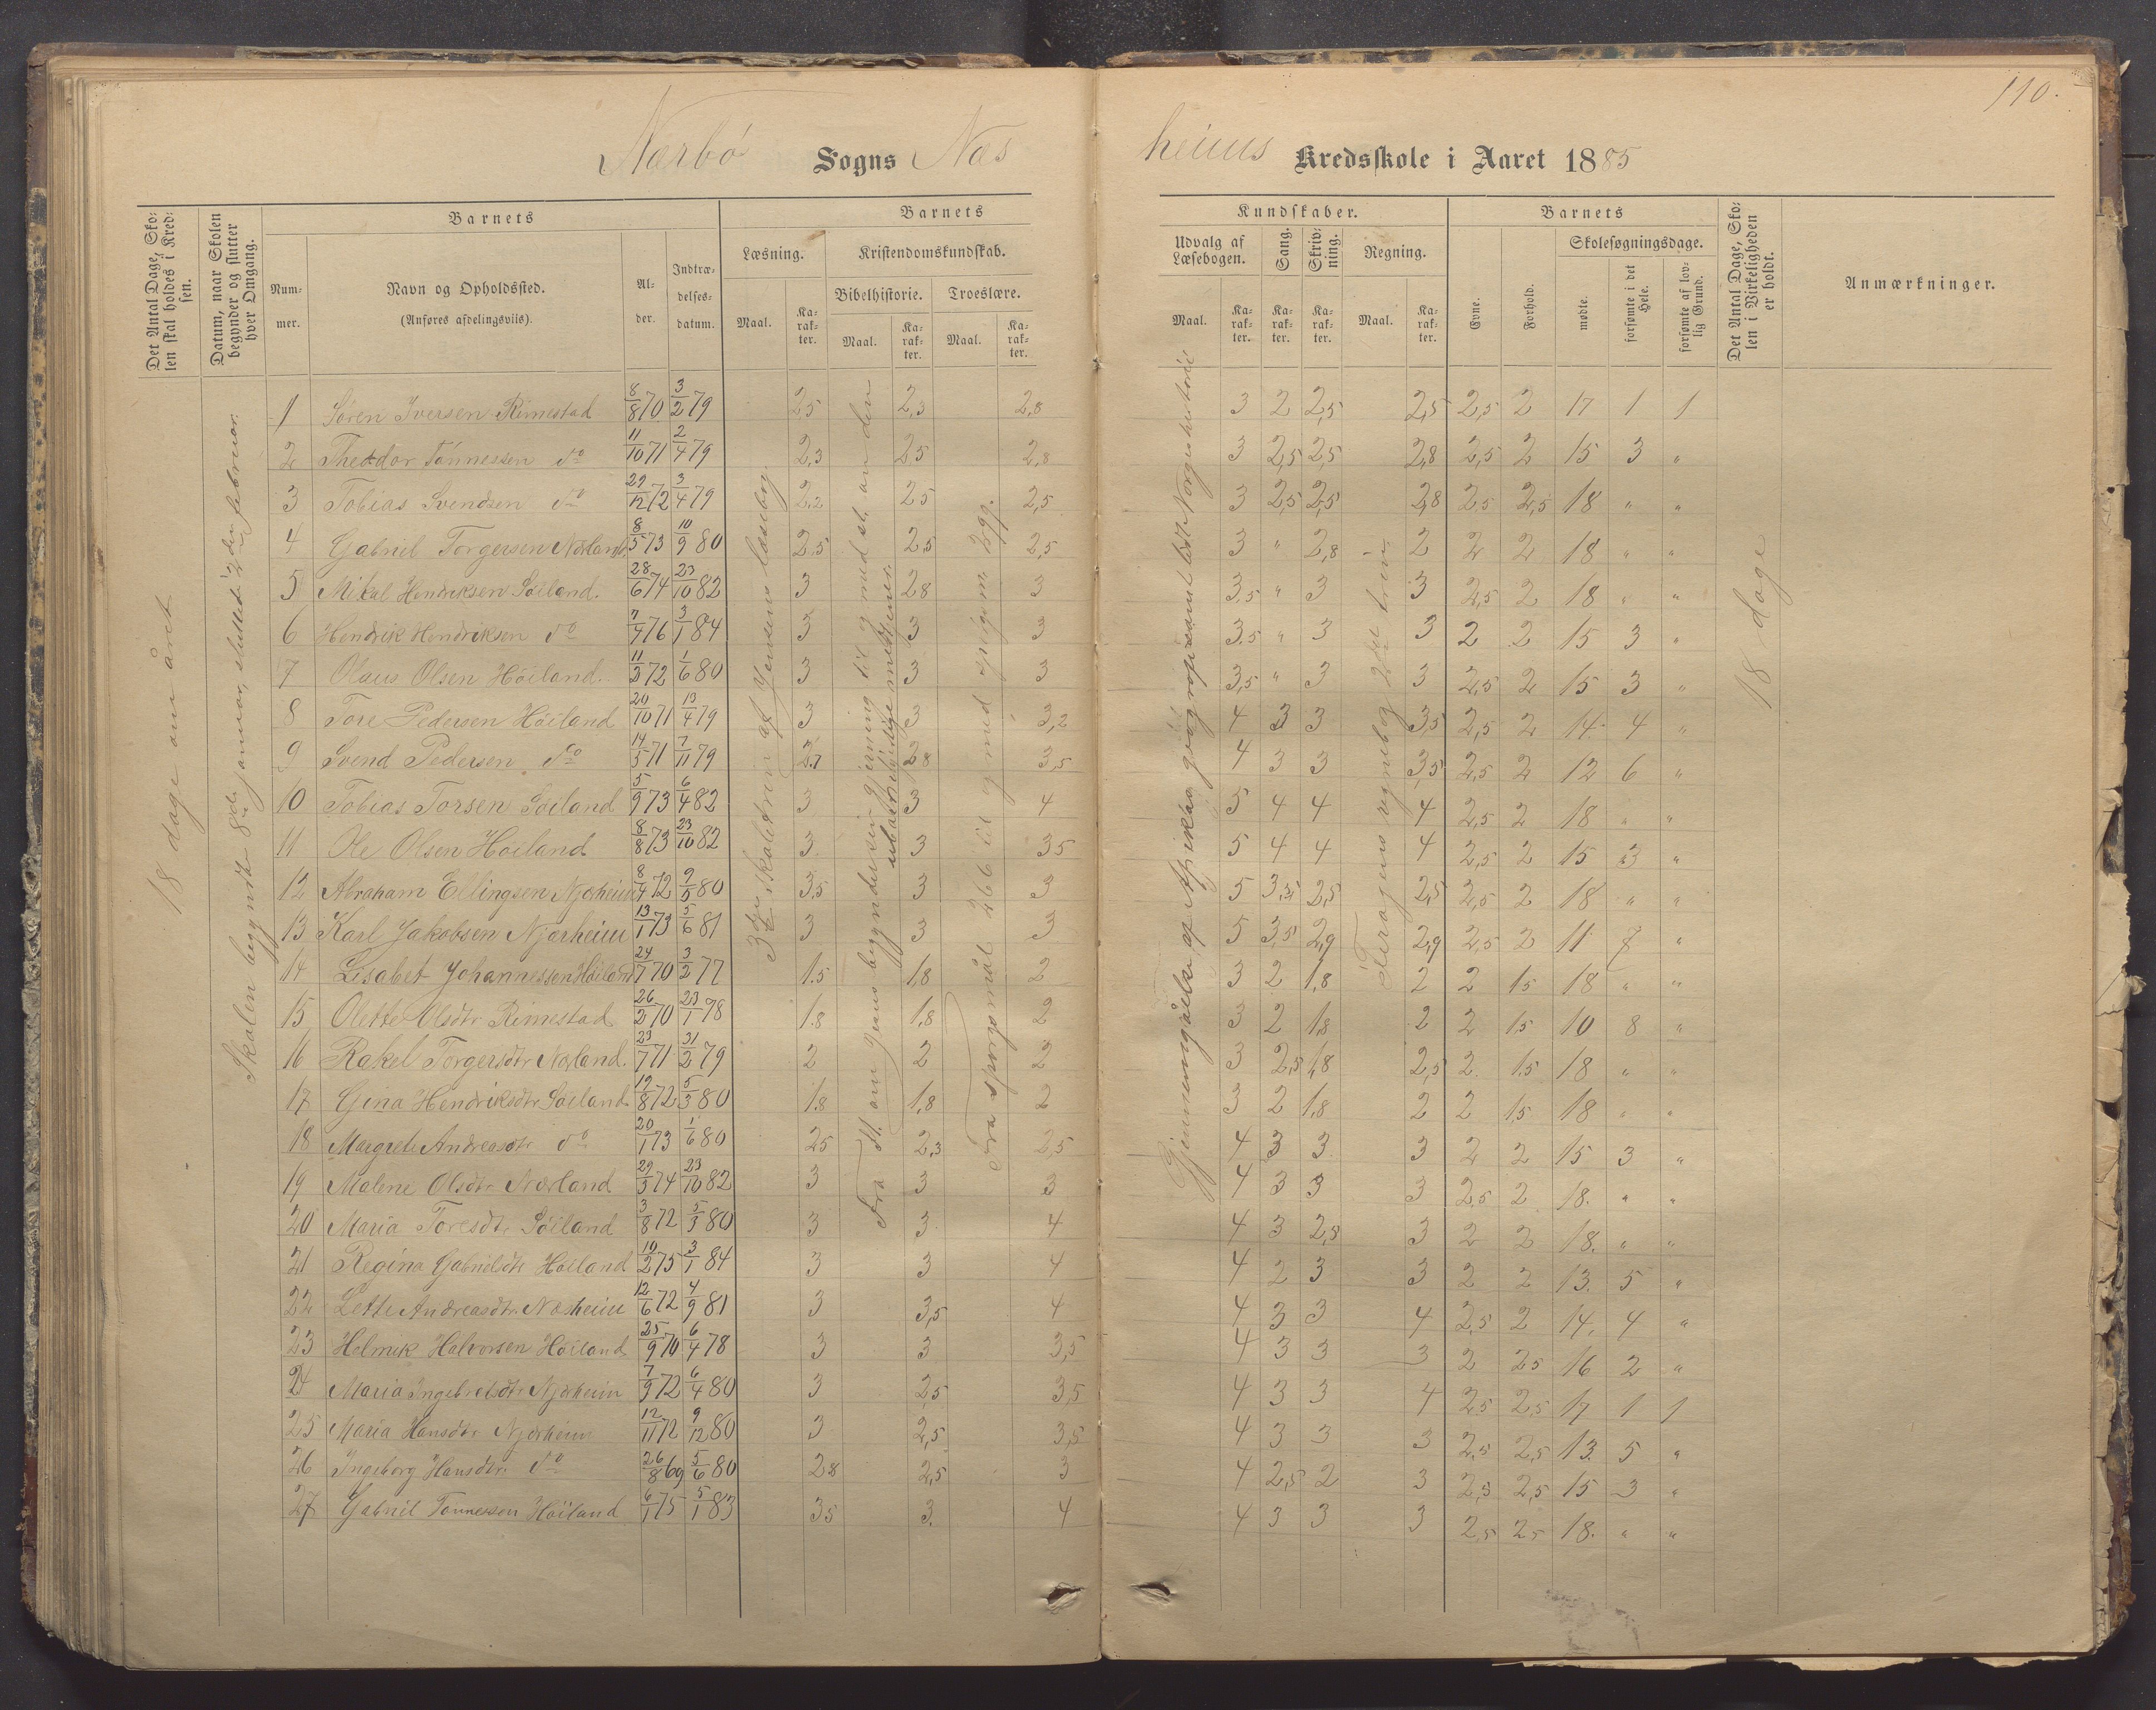 110.
Nærbö Sogns Næs
heims Kredsskole i Aaret 1885
Det Antal Dage, Skolen skal holdes i Kredsen.
Datum, naar Skolen begynder og slutter hver Omgang.
Barnets
Nummer.
Navn og Opholdssted.
(Anføres afdelingsviis).
Alder.
Indtrædelsesdatum.
Barnets
Læsning.
Kristendomskundskab.
Maal.
Karakter.
Bibelhistorie.
Troeslære.
Maal.
Karakter.
Maal.
Karakter.
Kundskaber.
Udvalg af Læsebogen.
Sang.
Skrivning.
Regning.
Maal.
Karakter.
Karakter.
Karakter.
Maal.
Karakter.
Barnets
Evne.
Forhold.
Skolesøgningsdage.
mødte.
forsømte i det Hele.
forsømte af lovlig Grund.
Det Antal Dage, Skolen i Virkeligheden er holdt.
Anmærkninger.
18 dage om året
Skolen begyndte 8de januar, sluttet 2den februar.
3die skoletrin af Jensens læsebog
Fra st. om Jesus begynder sin gjerning til og med st. om den ubarmhjertige medtjener.
Fra spørgsmål 266 til og med spørgsm.
Gjennemgåelse af Afrikas geografi samt lidt Norgeshistorie
regnebog 2det trin
18 dage
1 Sören Iversen Rimestad 8/8 70 3/2 79 2,5 2,3 2,8 3 2 2,5 2,5 2,5 2 17 1 1
2 Theodor Tönnessen do 11/10 71 2/4 79 2,3 2,5 2,8 3 2,5 2,5 2,8 2,5 2 15 3 "
3 Tobias Svendsen do 29/12 72 3/4 79 2,2 2,5 2,5 3 2,5 2,5 2,8 2,5 2,5 18 " "
4 Gabriel Torgersen Norland 8/5 73 10/9 80 2,5 2,5 2,5 3 " 2,8 2 2 2 18 " "
5 Mikal Hendriksen Söiland. 28/6 74 23/10 82 3 2,8 3 3,5 " 3 3 2,5 2 18 " "
6 Hendrik Hendriksen do 7/4 76 3/1 84 3 3 3 3,5 " 3 3 2 2 15 3 "
7 Olaus Olsen Höiland. 11/3 72 1/6 80 3 3 3 3,5 " 3 3 2,5 2 15 3 "
8 Tore Pedersen Höiland 20/10 71 13/4 79 3 3 3,2 4 3 3 3,5 2,5 2 14 4 "
9 Svend Pedersen do 14/5 71 7/11 79 2,7 2,8 3,5 4 3 3 3,5 2,5 2 12 6 "
10 Tobias Torsen Söiland 5/9 73 6/4 82 3 3 4 5 4 4 4 2,5 2 18 " "
11 Ole Olsen Höiland 8/8 73 23/10 82 3 3 3,5 5 4 4 4 2,5 2 15 3 "
12 Abraham Ellingsen Njærheim 8/4 72 9/5 80 3,5 3 3 5 3,5 2,5 2,5 2,5 2 18 " "
13 Karl Jakobsen Njærheim 13/1 73 5/6 81 3 3 3 5 3,5 2,9 2,9 2,5 2 11 7 "
14 Lisabet Johannessen Höiland 24/7 70 3/2 77 1,5 1,8 2 3 2 1,8 2 2 1,5 18 " "
15 Olette Olsdtr Rimestad 26/2 70 23/1 78 1,8 1,8 2 3 2 1,8 2 2 1,5 10 8 "
16 Rakel Torgersdtr Norland. 23/7 71 31/2 79 2 2 2 3 2,5 1,8 2,5 2 1,5 18 " "
17 Gina Hendriksdtr Söiland 19/8 72 5/3 80 1,8 1,8 2 3 2 1,8 2 2 1,5 18 " "
18 Margrete Andreasdtr do 20/1 73 1/6 80 2,5 2,3 2,5 4 3 3 3 2 2 15 3 "
19 Malene Olsdtr Norland 29/5 74 23/10 82 3 3 3 4 3 3 3 2,5 2 18. " "
20 Maria Toresdtr Söiland 3/8 72 5/3 80 3 3 4 4 3 2,8 3 2 2 18. " "
21 Regina Gabrieldtr Höiland 10/2 75 3/1 84 3 3 4 4 2 3 3 2 2 13. 5 "
22 Lette Andreasdtr. Næsheim 12/6 72 4/9 81 3 3,5 4 4 3 3 4 2,5 2 14. 4 "
23 Helmik Halvorsen Höiland 25/9 70 6/4 78 3 3 3,5 4 3 3 3 2 2,5 16 2 "
24 Maria Ingebretsdtr Njærheim 7/9 72 6/4 80 3 2,5 3,5 4 3 3 4 2,5 2,5 17 1 1
25 Maria Hansdtr Njærheim 12/11 72 9/12 80 3 2,5 3,5 4 3 3 3 2,5 2,5 13. 5 "
26 Ingeborg Hansdtr. do 26/8 69 5/6 80 2,8 2,5 3 4 2,5 2 3 2,3 2,5 15 3 "
27 Gabriel Tönnessen Höiland 6/1 75 5/1 83 3,5 3. 4 4 3 3 3 2,5 2,5 18. " "